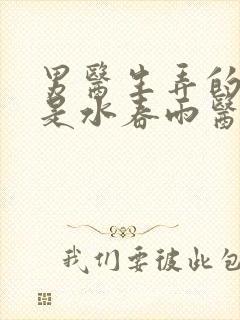 男醫生弄的
是水春雨醫
我们要彼此包